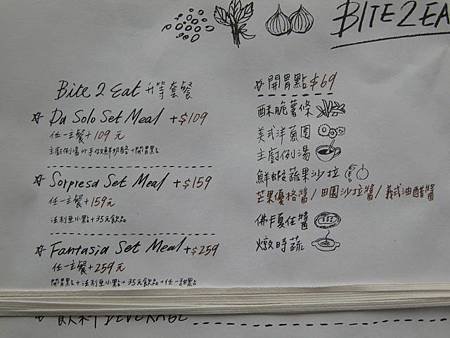 BITE2EA
Bite 2 Eat 升等套餐
Da Solo Set Meal +$109
任一主餐+109元
主廚例湯or手收鮮奶酪+開胃點
Sorpresa Set Meal +$159
任一主餐+159元
法利亞小點+35元飲品
Fantasia Set Meal +$259
任一主餐+259元
開胃點+法利亞小點+35元飲品+任一甜點
開胃點$69
酥脆薯條
美式洋蔥圈
主廚例湯
鮮蝦蔬果沙拉
芒果優格醬/田園沙拉醬/義式油醋醬
佛卡夏佐醬
燉時蔬
飲料 BEVERAGE